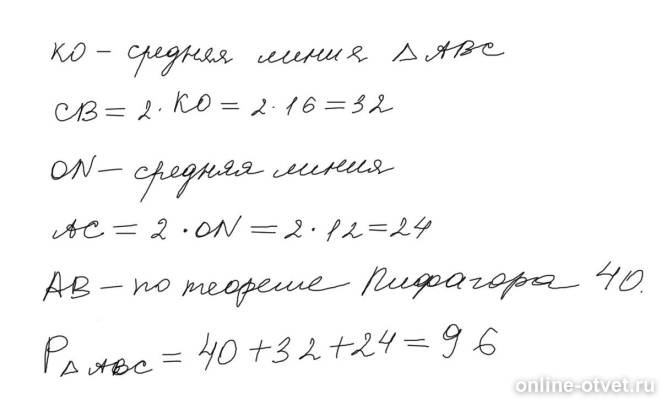 KO – средняя линия △ ABC
CB = 2 · KO = 2 · 16 = 32
ON – средняя линия
AC = 2 · ON = 2 · 12 = 24
AB – по теореме Пифагора 40.
P△ ABC = 40 + 32 + 24 = 96
online-otvet.ru